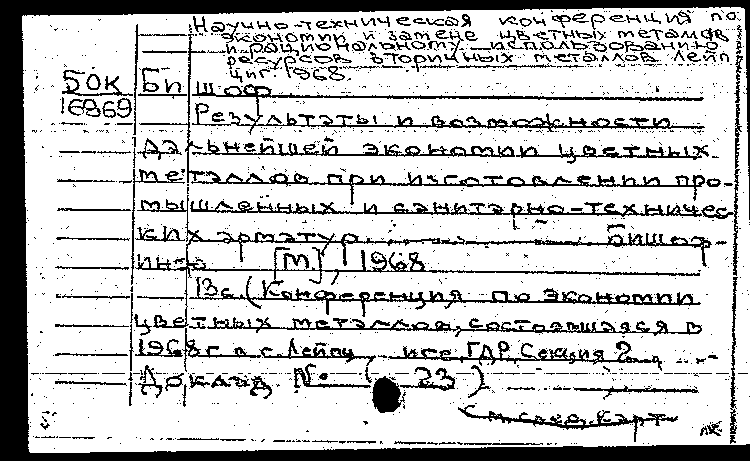 Научно-техническая конференция по
экономии и замене цветных металлов
и рациональному использованию
ресурсов вторичных металлов Лейп
циг. 1968.
БОК Бишоф
16869 Результаты и возможности
дальнейшей экономии цветных
металлов при изготовлении про-
мышленных и санитарно-техничес
ких арматур. Бишоф-
[М], 1968
13с. (Конференция по экономии
цветных металлов, состоявшаяся в
1968г в г. Лейпц ГДР. Секция 2
Доклад № ( 23 )
См. след. карт